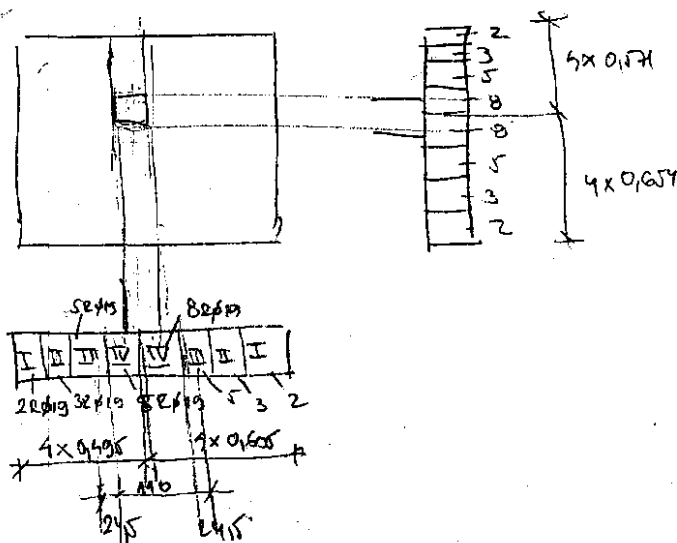 2
3
5
8
8
5
3
2
4 x 0,654
5RØ19
8RØ19
I II III IV IV III II I
2RØ19 3RØ19 8RØ19 5 3 2
4 x 0,495
4 x 0,605
110
24,5
24,5